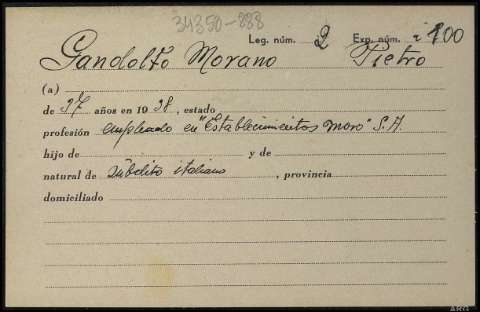 34350-888
Leg. núm. 2 Exp. núm. 100
Gandolfo Morano Pietro
(a)
de 37 años en 1938, estado
profesión empleado en "Establecimientos Moro" S.A.
hijo de y de
natural de súbdito italiano, provincia
domiciliado
ARG